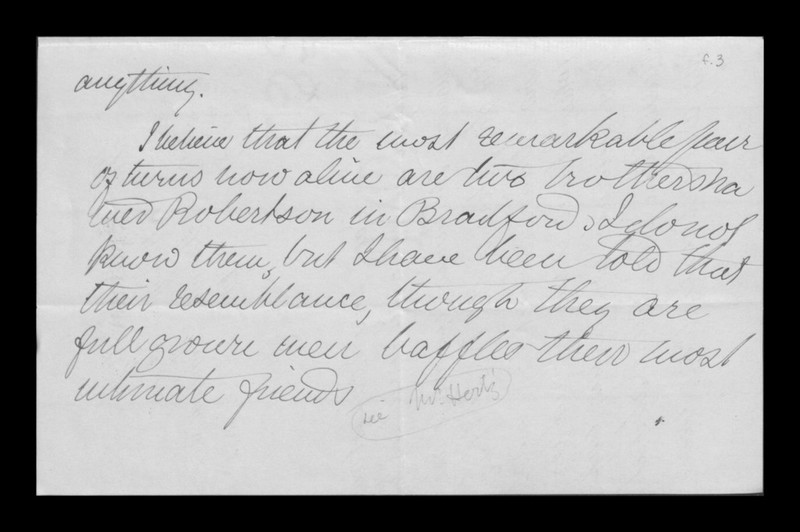 f.3
anything.
I believe that the most remarkable pair
of twins now alive are two brothers na
med Robertson in Bradford. I do not
know them, but I have been told that
their resemblance, though they are
full grown men baffles their most
intimate friends
see Mr. Hertz